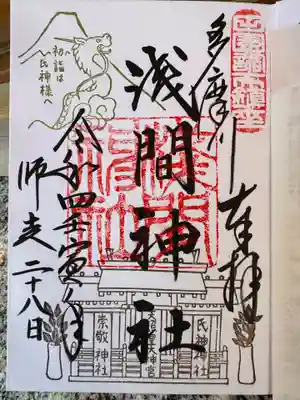 多摩川
奉拝
浅間神社
令和四壬寅年
師走二十八日
初詣は
氏神様へ
氏神神社
崇敬神社